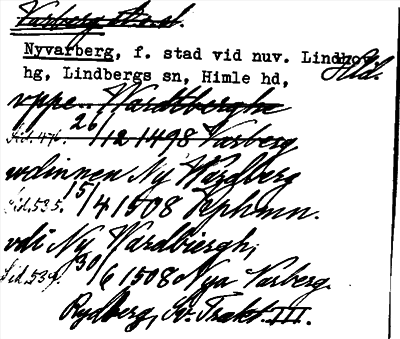 Varberg
Nyvarberg, f. stad vid nuv. Lindhov
hg, Lindbergs sn, Himle hd, Hld.
vppe Wardtbergha
Sid. 476. 26/12 1498 Varberg
vdinnen Ny Wardberg
Sid. 535. 15/4 1508
vdi Ny Vardbiergh,
Sid. 539. 30/6 1508 Nya Varberg.
Rydberg, Sv. Trakt. III.